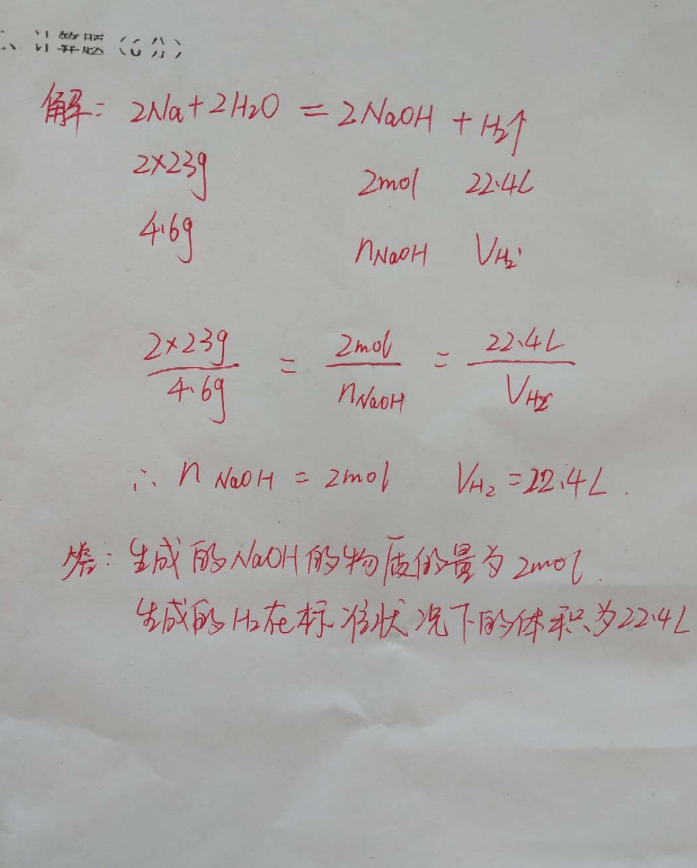 、计算题(6分)
解: 2Na+2H2O = 2NaOH + H2↑
2×23g 2mol 22.4L
4.6g nNaOH VH2
2×23g/4.6g = 2mol/nNaOH = 22.4L/VH2
∴ n NaOH = 2mol VH2 = 22.4L.
答: 生成的NaOH的物质的量为2mol.
生成的H2在标准状况下的体积为22.4L